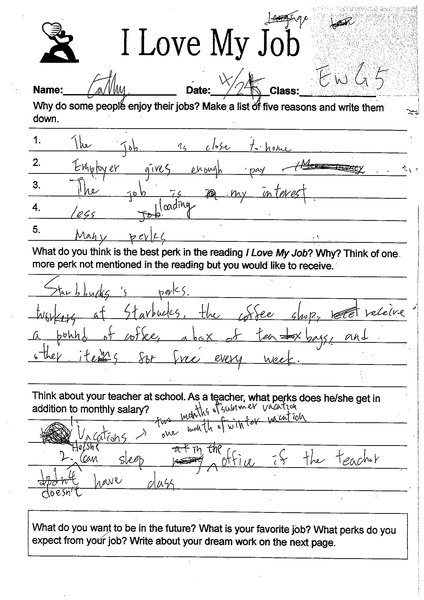 Language
I Love My Job
Name: Cathy Date: 4/25 Class: EW G5
Why do some people enjoy their jobs? Make a list of five reasons and write them
down.
1. The job is close to home
2. Employer gives enough pay
3. The job is my interest
4. less job loading
5. Many perks
What do you think is the best perk in the reading I Love My Job? Why? Think of one
more perk not mentioned in the reading but you would to receive.
Starbbucks's perks.
Workers at Starbucks, the coffee shop, receive
a pound of coffee, a box of tea bags, and
other items for free every week.
Think about your teacher at school. As a teacher, what perks does he/she get in
addition to monthly salary?
two months of summer vacation
Vacations → one month of winter vacation
He/she at in the
2. can sleep office if the teacher
didn't have class.
doesn't
What do you want to be in the future? What is your favorite job? What perks do you
expect from your job? Write about your dream work on the next page.